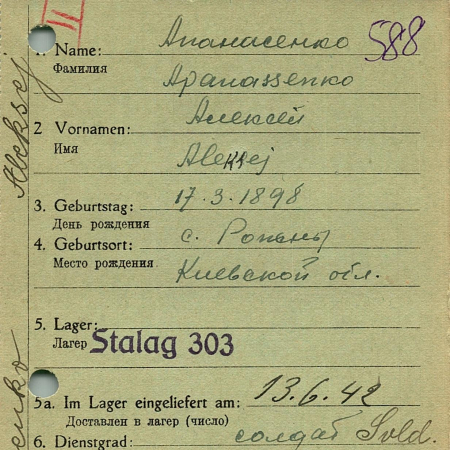 II
588
1. Name: Апанасенко
Фамилия Apanassenko
2 Vornamen: Алексей
Имя Aleksej
3. Geburtstag: 17.3.1898
День рождения
4. Geburtsort: с. Ропаны
Место рождения Киевской обл.
5. Lager:
Лагерь Stalag 303
5a. Im Lager eingeliefert am: 13.6.42
Доставлен в лагерь (число)
6. Dienstgrad: солдат Sold.
Aleksej
enko